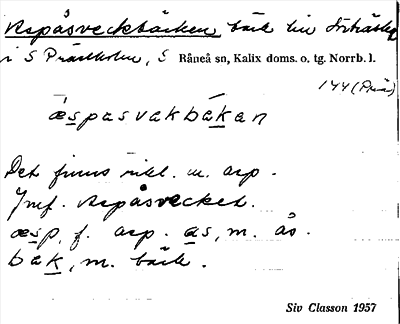 Aspåsveckbäcken, bäck
i S Prästholm, S Råneå sn, Kalix doms. o. tg. Norrb. l.
144 (Präs)
æspasvakbakan
Det finns rikl. m. asp.
Jmf. Aspåsvecket.
æsp, f. asp. as, m. ås.
bak, m. bäck.
Siv Classon 1957